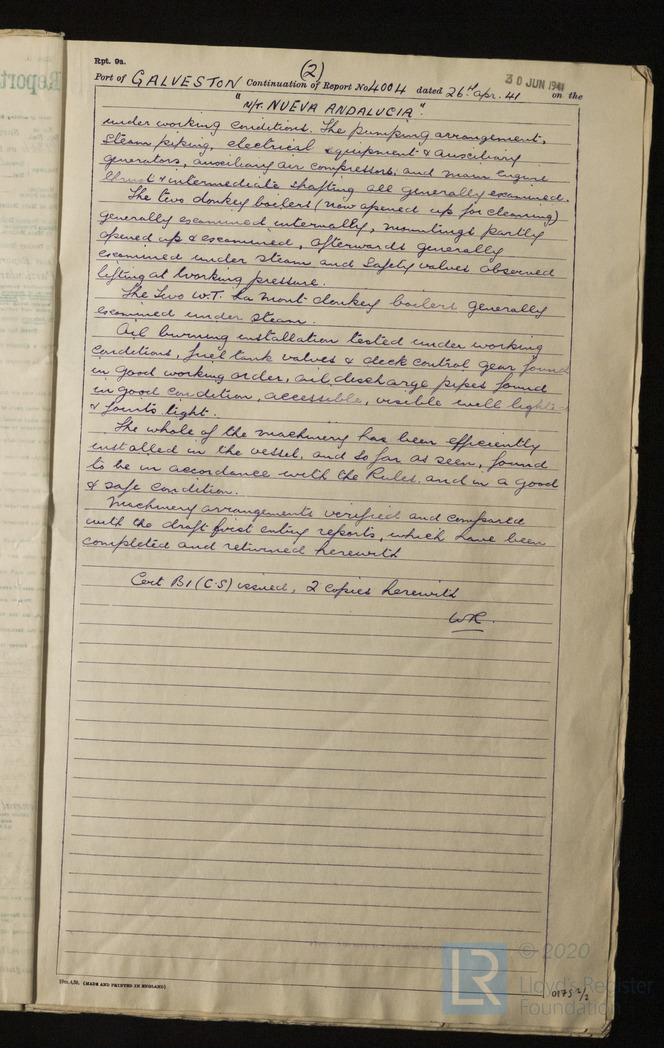 Rpt. 9a.
(2)
30 JUN 1941
Port of GALVESTON Continuation of Report No 4004 dated 26th Apr. 41 on the
"M/T. NUEVA ANDALUCIA".
under working conditions. The pumping arrangement,
steam piping, electrical equipment & auxiliary
generators, auxiliary air compressors, and main engine
thrust & intermediate shafting all generally examined.
The two donkey boilers (now opened up for cleaning)
generally examined internally, mountings partly
opened up & examined, afterwards generally
examined under steam and safety valves observed
lifting at working pressure.
The two W.T. La Mont donkey boilers generally
examined under steam.
Oil burning installation tested under working
conditions, fuel tank valves & deck control gear found
in good working order, oil discharge pipes found
in good condition, accessible, visible well lighted
& joints tight.
The whole of the machinery has been efficiently
installed in the vessel, and so far as seen, found
to be in accordance with the Rules, and in a good
& safe condition.
Machinery arrangements verified and compared
with the draft first entry reports, which have been
completed and returned herewith
Cert B1 (C.S) issued, 2 copies herewith
WR.
(MADE AND PRINTED IN ENGLAND)
LR
© 2020
Lloyd's Register
Foundation
0175 2/2